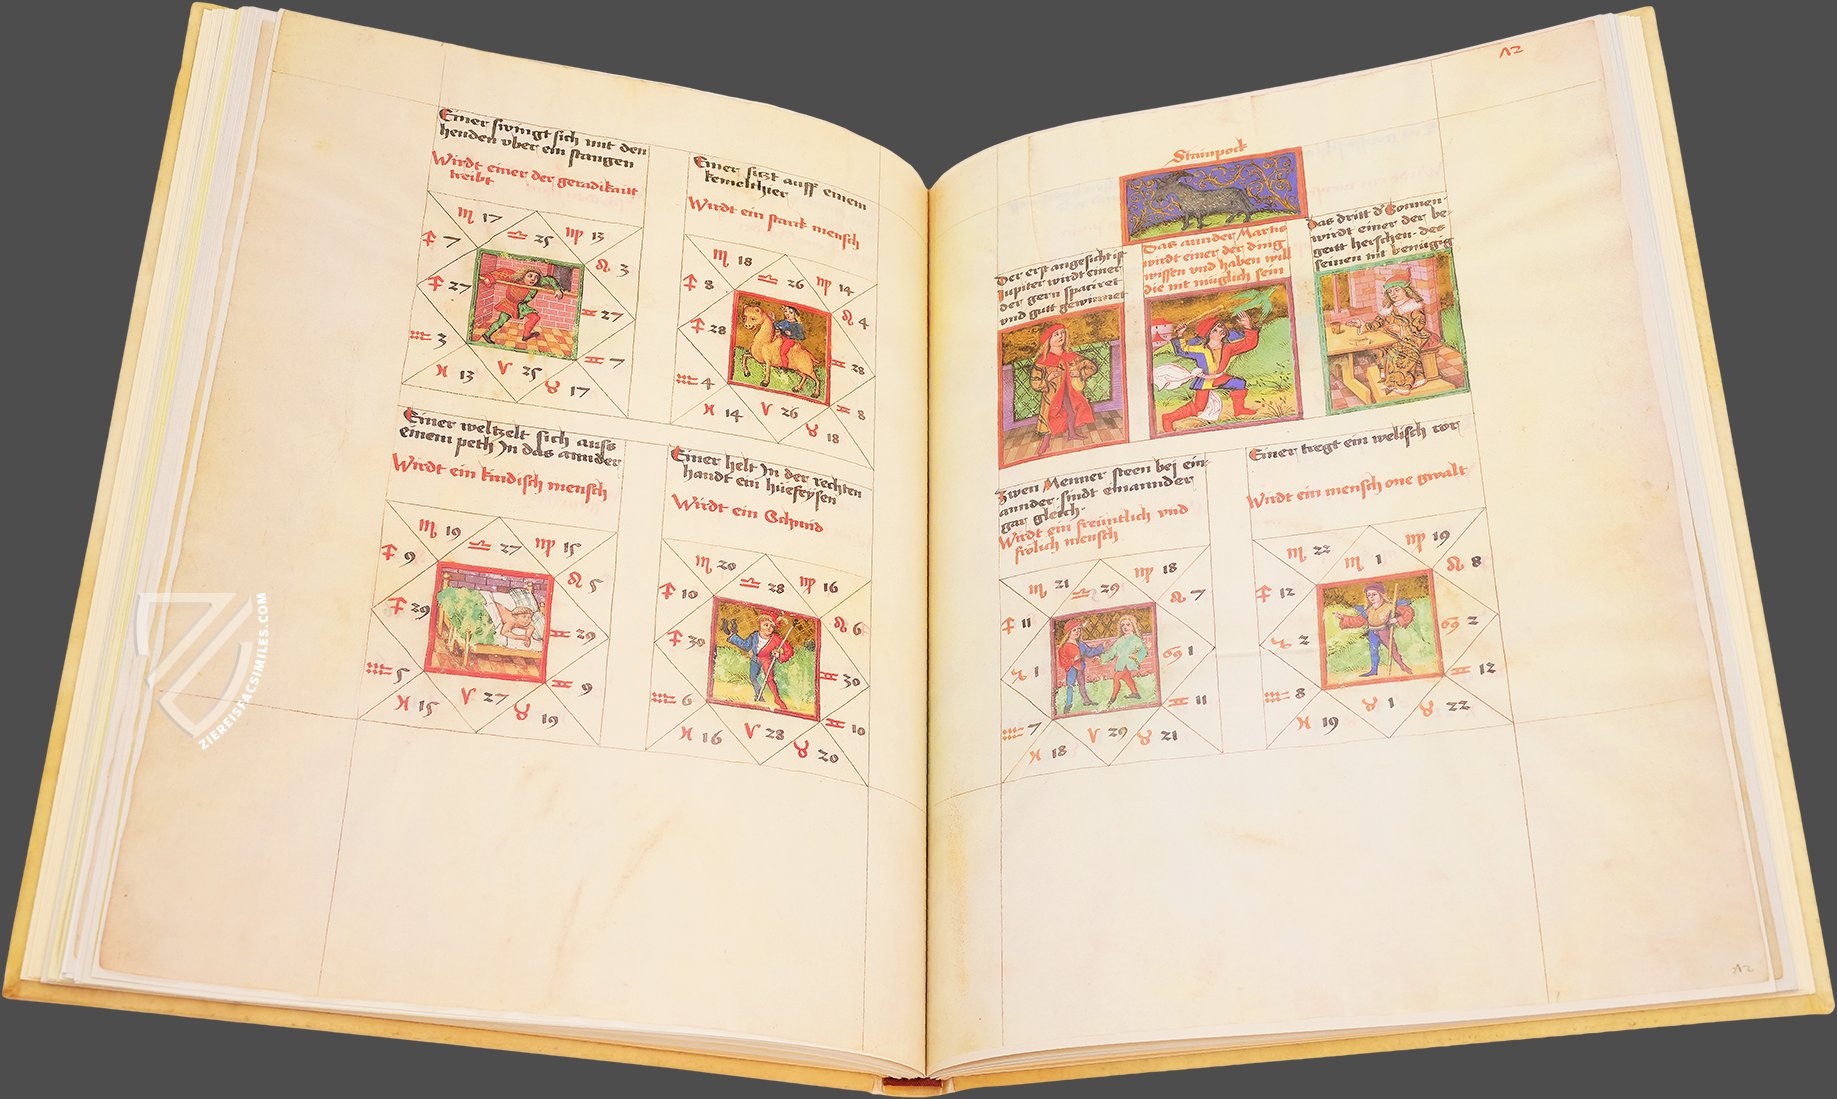 Einer swingt sich mit den
henden vber ein stangen
Wirdt einer der geradikaitt
treibt
♏ 17 ♎ 25 ♍ 13
♐ 7 ♌ 3
♐ 27 ♊ 27
♒ 3 ♊ 7
♓ 13 ♈ 25 ♉ 17
Einer sitzt auff einem
kemelthier
Wirdt ein starck mensch
♏ 18 ♎ 26 ♍ 14
♐ 8 ♌ 4
♐ 28 ♊ 28
♒ 4 ♊ 8
♓ 14 ♈ 26 ♉ 18
Einer weltzelt sich auss
einem peth Jn das annder
Wirdt ein kindisch mensch
♏ 19 ♎ 27 ♍ 15
♐ 9 ♌ 5
♐ 29 ♊ 29
♒ 5 ♊ 9
♓ 15 ♈ 27 ♉ 19
Einer helt Jn der rechten
handt ein huefeysen
Wirdt ein Schmid
♏ 20 ♎ 28 ♍ 16
♐ 10 ♌ 6
♐ 30 ♊ 30
♒ 6 ♊ 10
♓ 16 ♈ 28 ♉ 20
12
Stainpock
Der erst angesicht ist
Jupiter wirdt einer
der gern spaciret
vnd gutt gewinnet
Das annder Martis
wirdt einer der ding
wissen vnd haben will
die nit müglich sein
Das dritt d' Sonnen
wirdt einer der be-
gertt herschen des
seinen nit benügig
Zwen Menner steen bej ein-
annder sindt einannder
gar gleich
Wirdt ein freüntlich vnd
frölich mensch
♏ 21 ♎ 29 ♍ 18
♐ 11 ♌ 7
♑ 1 ♋ 1
♒ 7 ♊ 11
♓ 18 ♈ 29 ♉ 21
Einer tregt ein welisch ror
Wirdt ein mensch one gwalt
♏ 22 ♏ 1 ♍ 19
♐ 12 ♌ 8
♑ 2 ♋ 2
♒ 8 ♊ 12
♓ 19 ♉ 1 ♉ 22
12
ZIEREISFACSIMILES.COM